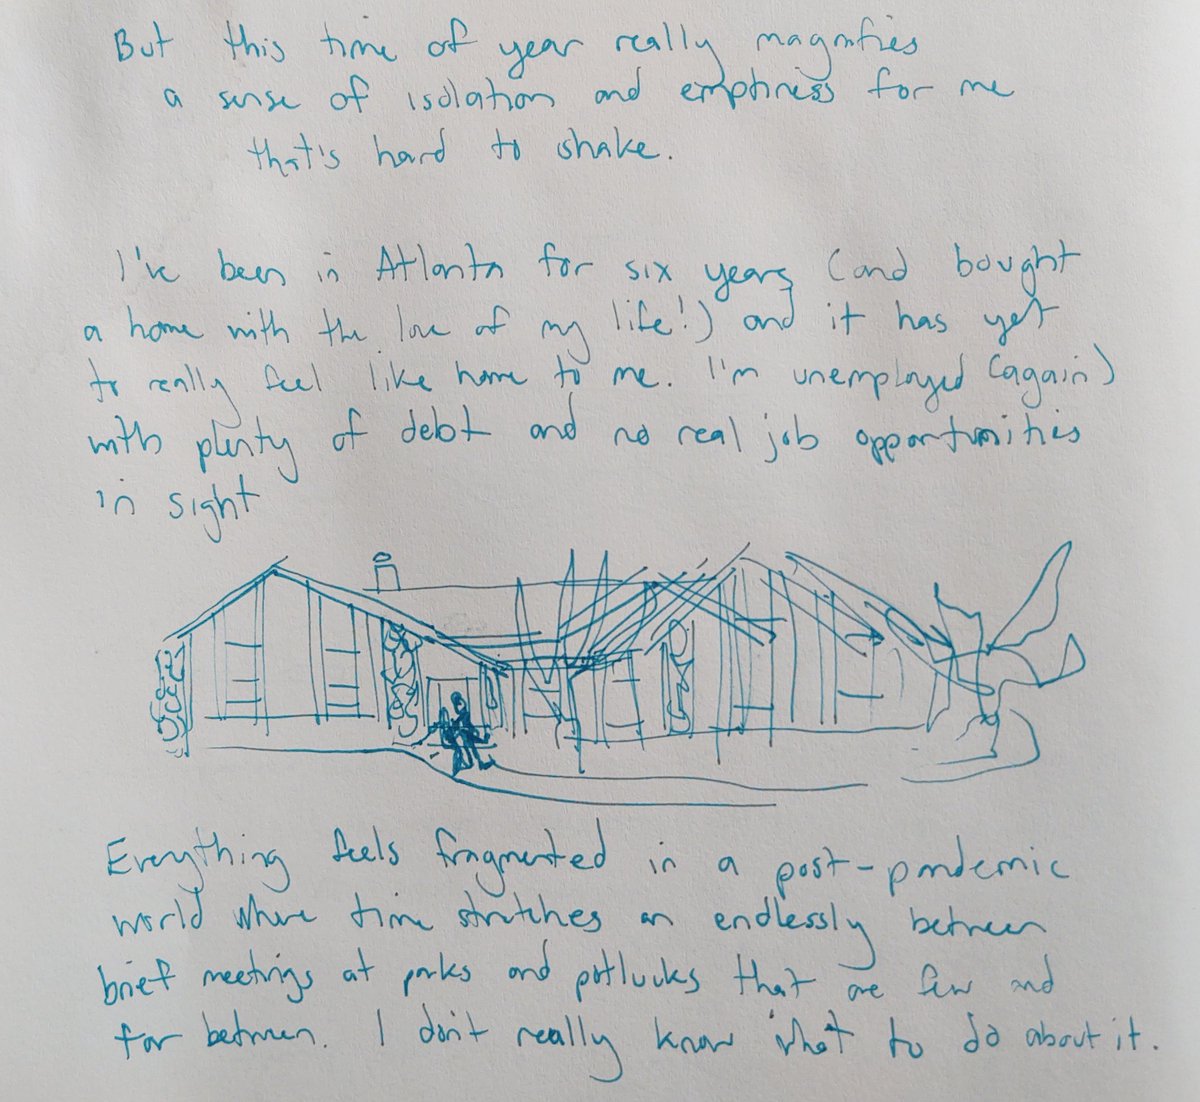 But this time of year really magnifies
a sense of isolation and emptiness for me
that's hard to shake.
I've been in Atlanta for six years (and bought
a home with the love of my life!) and it has yet
to really feel like home to me. I'm unemployed (again)
with plenty of debt and no real job opportunities
in sight
Everything feels fragmented in a post-pandemic
world where time stretches on endlessly between
brief meetings at parks and potlucks that are few and
far between. I don't really know what to do about it.